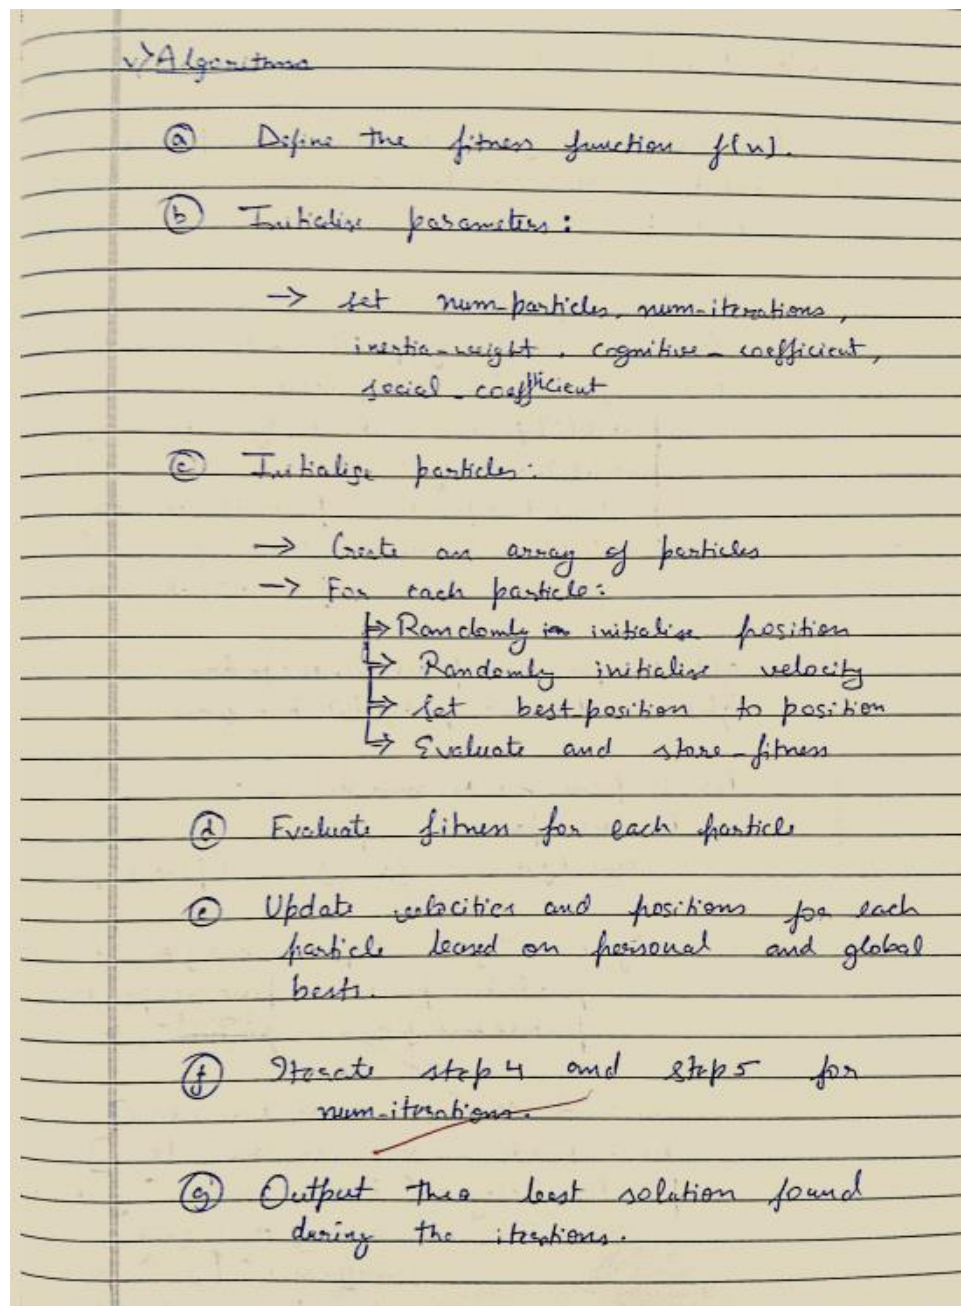 v) Algorithms
a Define the fitness function f(x).
b Initialise parameters:
→ Set num-particles, num-iterations,
inertia-weight, cognitive-coefficient,
social-coefficient
c Initialise particles:
→ Create an array of particles
→ For each particle:
→ Randomly initialise position
→ Randomly initialise velocity
→ Set best-position to position
→ Evaluate and store-fitness
d Evaluate fitness for each particle
e Update velocities and positions for each
particle based on personal and global
bests.
f Iterate step 4 and step 5 for
num-iterations.
g Output the best solution found
during the iterations.